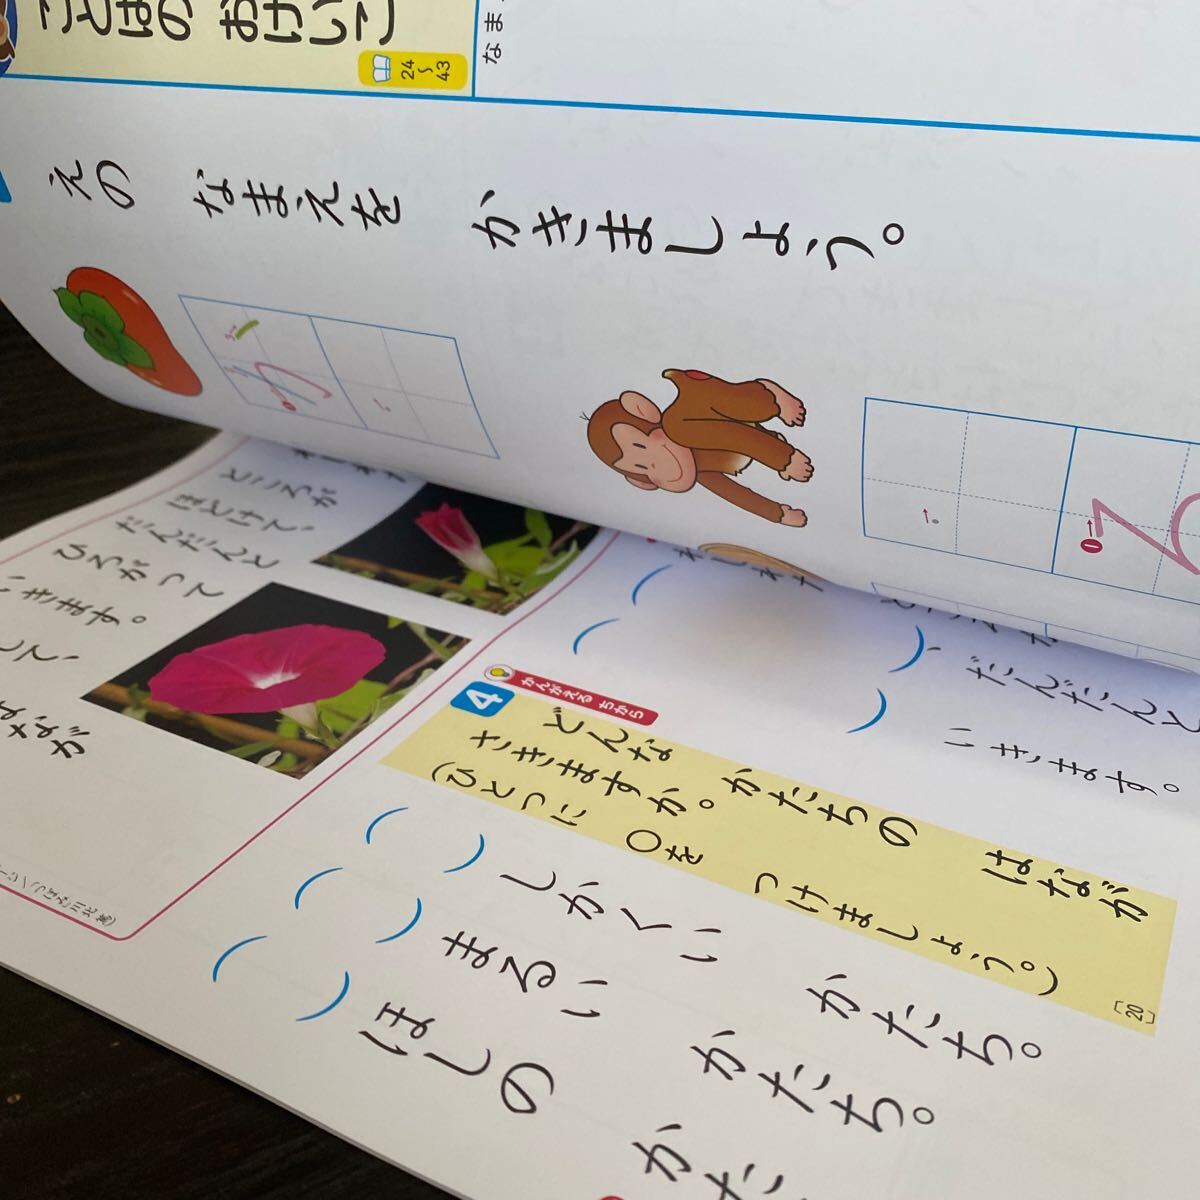 ことばの おけいこ
24〜43
なま
えの なまえを かきましょう。
ところが
ほどけて、
だんだんと
ひろがって
いきます。
して、
なが
だんだんと
いきます。
4
かんがえる ちから
どんな かたちの はなが
さきますか。
(ひとつに ○を つけましょう。)
[20]
( ) しかくい かたち。
( ) まるい かたち。
( ) ほしの かた